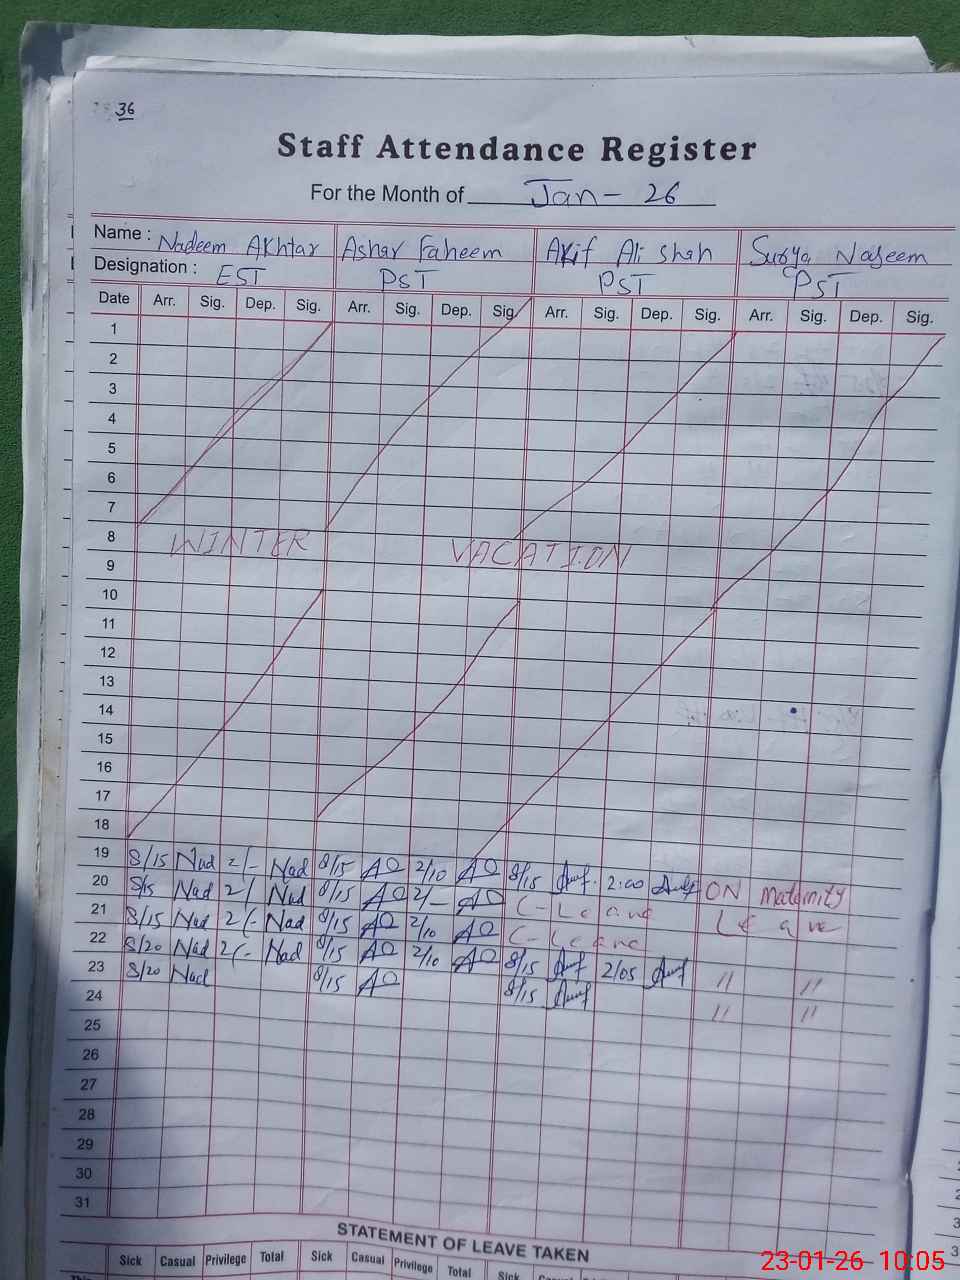 36
Staff Attendance Register
For the Month of Jan - 26
Name : Nadeem Akhtar Ashar Faheem Akif Ali shah Surya Nazeem
Designation : EST PST PST PST
Date Arr. Sig. Dep. Sig. Arr. Sig. Dep. Sig. Arr. Sig. Dep. Sig. Arr. Sig. Dep. Sig.
1
2
3
4
5
6
7
8 WINTER VACATION
9
10
11
12
13
14
15
16
17
18
19 8/15 Nad 2/- Nad 8/15 2/10 8/15 2:00 ON Maternity
20 8/15 Nad 2/- Nad 8/15 2/- C-Leave Leave
21 8/15 Nad 2/- Nad 8/15 2/10 C-Leave
22 8/20 Nad 2/- Nad 8/15 2/10 8/15 2/05 " "
23 8/20 Nad 8/15 8/15 " "
24
25
26
27
28
29
30
31
STATEMENT OF LEAVE TAKEN
Sick Casual Privilege Total Sick Casual Privilege Total Sick
23-01-26 10:05